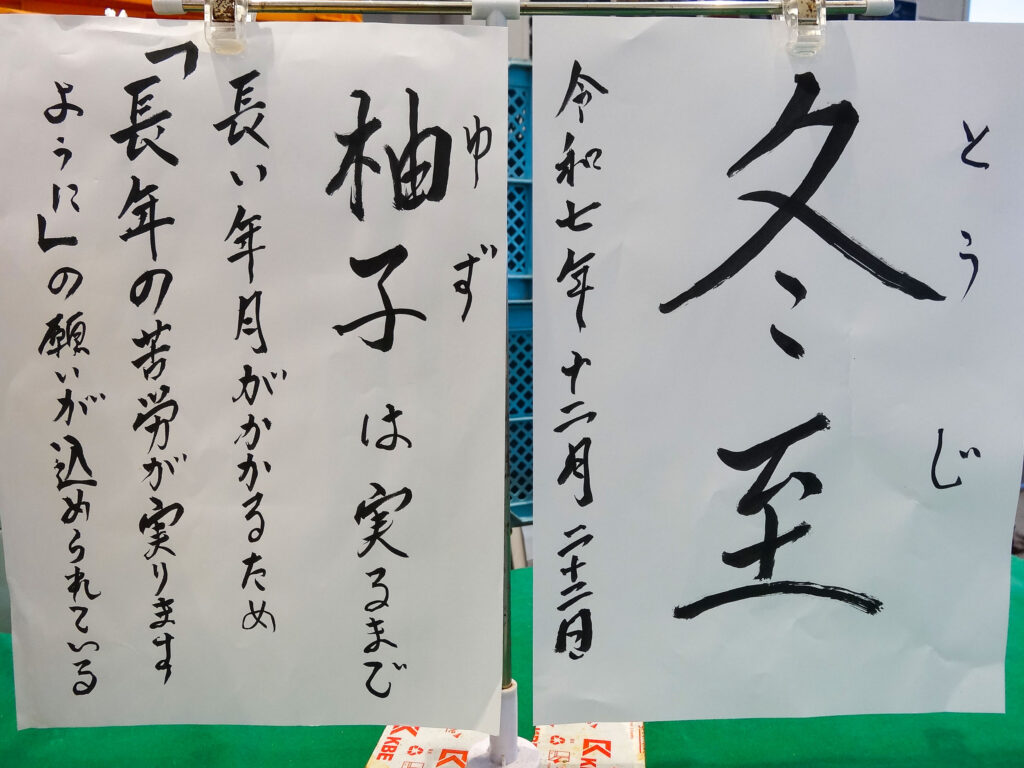 冬至
とうじ
令和七年十二月二十二日
柚子は実るまで
ゆず
長い年月がかかるため
「長年の苦労が実ります
ように」の願いが込められている
KBE